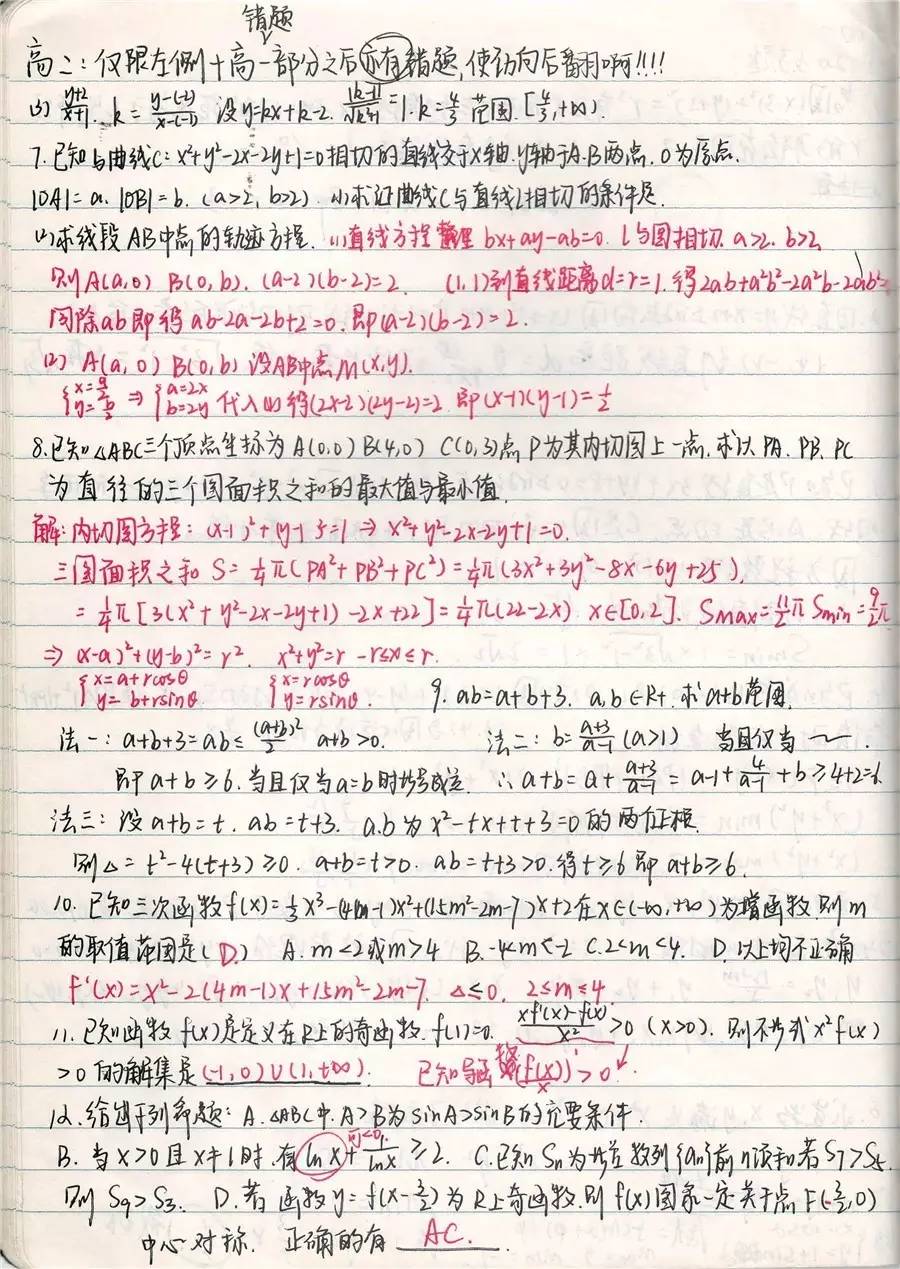 错题
高二:仅限左侧+高一部分之后亦有错题,使劲向后翻啊!!!!
(3) \frac{y+2}{x+1}. k=\frac{y-(-2)}{x-(-1)} 设y=kx+k-2. \frac{|k-1|}{\sqrt{k²+1}}=1. k=\frac{4}{3} 范围.[\frac{4}{3},+∞).
7.已知与曲线C: x²+y²-2x-2y+1=0相切的直线交于x轴.y轴于A.B两点. O为原点.
|OA|=a. |OB|=b. (a>2, b>2). (1)求证曲线C与直线l相切的条件是
(2)求线段AB中点的轨迹方程. (1)直线方程 bx+ay-ab=0. l与圆相切. a>2. b>2,
则A(a,0) B(0,b). (a-2)(b-2)=2. (1,1)到直线距离d=r=1.得2ab+a²b²-2a²b-2ab²=
同除ab即得ab-2a-2b+2=0.即(a-2)(b-2)=2.
(2) A(a,0) B(0,b) 设AB中点M(x,y).
{x=\frac{a}{2} y=\frac{b}{2} ⇒ {a=2x b=2y 代入(1)得(2x-2)(2y-2)=2.即(x-1)(y-1)=\frac{1}{2}
8.已知△ABC三个顶点坐标为A(0,0) B(4,0) C(0,3)点P为其内切圆上一点.求以PA. PB. PC
为直径的三个圆面积之和的最大值与最小值.
解:内切圆方程: (x-1)²+(y-1)²=1 ⇒ x²+y²-2x-2y+1=0.
三圆面积之和 S=\frac{1}{4}π(PA²+PB²+PC²)=\frac{1}{4}π(3x²+3y²-8x-6y+25).
=\frac{1}{4}π[3(x²+y²-2x-2y+1)-2x+22]=\frac{1}{4}π(22-2x) x∈[0,2]. Smax=\frac{11}{2}π Smin=\frac{9}{2}π
⇒ (x-a)²+(y-b)²=r². x²+y²=r -r≤x≤r.
{x=a+rcosθ y=b+rsinθ. {x=rcosθ y=rsinθ. 9. ab=a+b+3. a,b∈R+.求a+b范围.
法一: a+b+3=ab≤\frac{(a+b)²}{2} a+b>0. 法二: b=\frac{a+3}{a-1} (a>1) 当且仅当~~.
即a+b≥6.当且仅当a=b时等号成立. ∴a+b=a+\frac{a+3}{a-1}=a-1+\frac{4}{a-1}+b≥4+2=6
法三:设a+b=t. ab=t+3. a.b为x²-tx+t+3=0的两征根.
则△=t²-4(t+3)≥0. a+b=t>0. ab=t+3>0.得t≥6即a+b≥6.
10. 已知三次函数f(x)=\frac{1}{3}x³-(4m-1)x²+(15m²-2m-7)x+2在x∈(-∞,+∞)为增函数则m
的取值范围是(D.) A. m<2或m>4 B. -4<m<-2 C. 2<m<4. D.以上均不正确
f'(x)=x²-2(4m-1)x+15m²-2m-7. △≤0. 2≤m≤4
11.已知函数f(x)是定义在R上的奇函数. f(1)=0. \frac{xf'(x)-f(x)}{x²}>0 (x>0). 则不等式x²f(x)
>0的解集是(-1,0)∪(1,+∞). 已知导函数(\frac{f(x)}{x})'>0
12.给出下列命题: A. △ABC中. A>B为sinA>sinB的充要条件.
B. 当x>0且x≠1时.有lnx+\frac{1}{lnx}≥2. 可<0 C.已知Sn为等差数列{an}前n项和若S7>S5.
则S9>S3. D.若函数y=f(x-\frac{3}{2})为R上奇函数.则f(x)图象一定关于点F(-\frac{3}{2},0)
中心对称. 正确的有 AC.